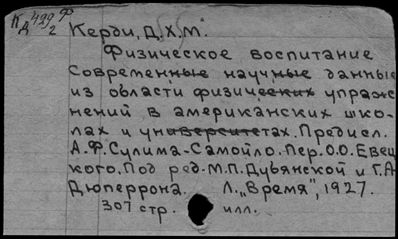 К 429 Ф
Д 2
Керди, Д.Х.М.
Физическое воспитание
Современные научные данные
из области физических упраж
нений в американских шко-
лах и университетах. Предисл.
А.Ф. Сулима-Самойло. Пер. О.О. Евец
кого. Под ред. М.П. Дубянской и Г.А.
Дюперрона. Л. „Время", 1927.
307 стр. илл.